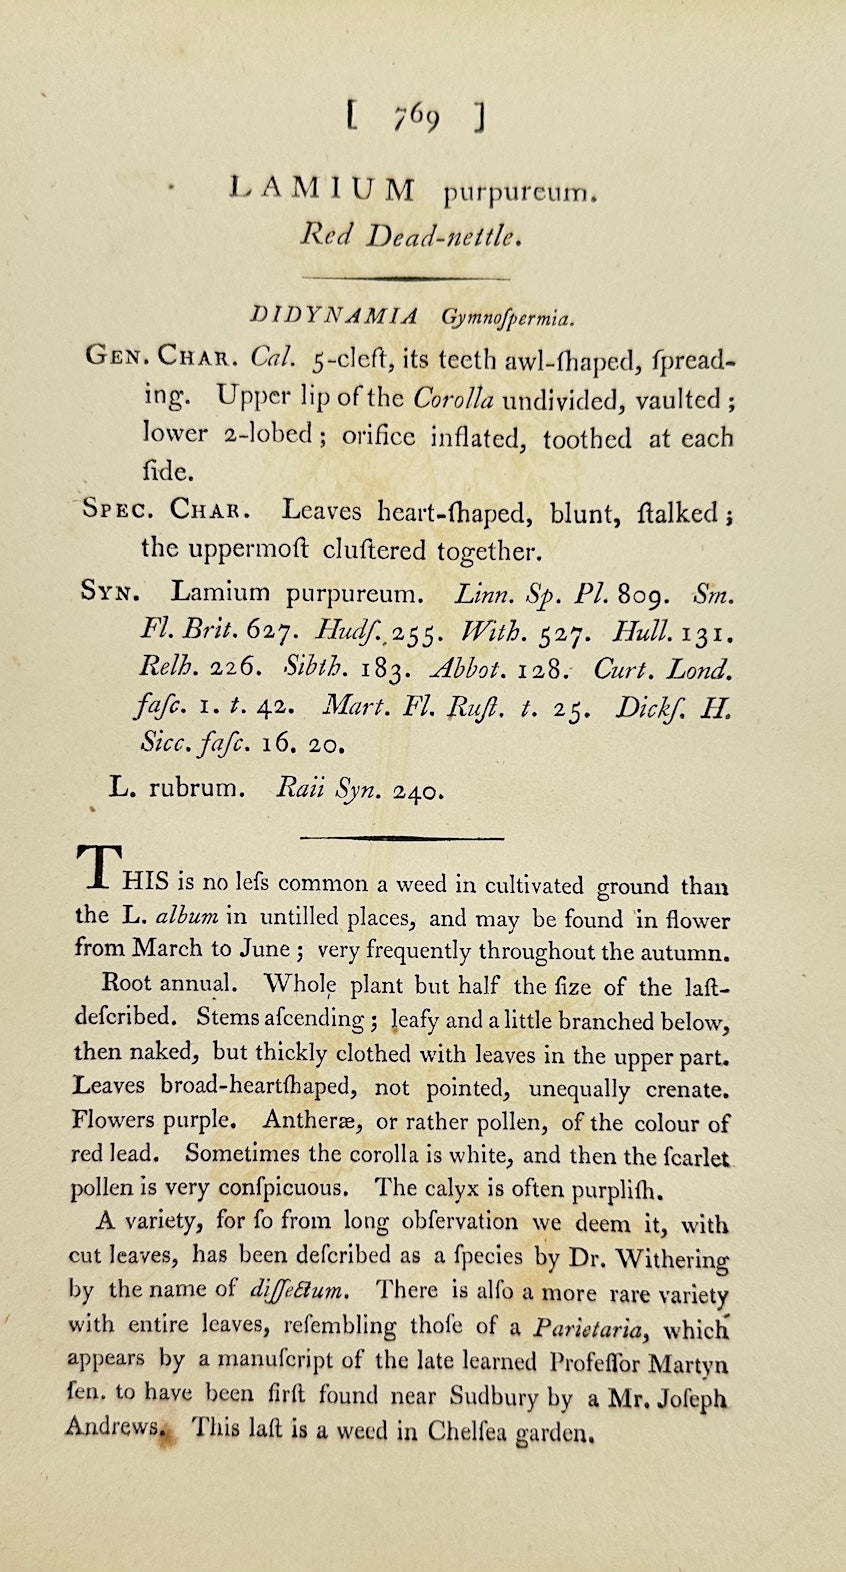 [ 769 ]
LAMIUM purpureum.
Red Dead-nettle.
DIDYNAMIA Gymnoſpermia.
GEN. CHAR. Cal. 5-cleft, its teeth awl-ſhaped, ſpread-
ing. Upper lip of the Corolla undivided, vaulted ;
lower 2-lobed ; orifice inflated, toothed at each
ſide.
SPEC. CHAR. Leaves heart-ſhaped, blunt, ſtalked ;
the uppermoſt cluſtered together.
SYN. Lamium purpureum. Linn. Sp. Pl. 809. Sm.
Fl. Brit. 627. Hudſ. 255. With. 527. Hull. 131.
Relh. 226. Sibth. 183. Abbot. 128. Curt. Lond.
faſc. 1. t. 42. Mart. Fl. Ruſt. t. 25. Dickſ. H.
Sicc. faſc. 16. 20.
L. rubrum. Raii Syn. 240.
THIS is no leſs common a weed in cultivated ground than
the L. album in untilled places, and may be found in flower
from March to June ; very frequently throughout the autumn.
Root annual. Whole plant but half the ſize of the laſt-
deſcribed. Stems aſcending ; leafy and a little branched below,
then naked, but thickly clothed with leaves in the upper part.
Leaves broad-heartſhaped, not pointed, unequally crenate.
Flowers purple. Antheræ, or rather pollen, of the colour of
red lead. Sometimes the corolla is white, and then the ſcarlet
pollen is very conſpicuous. The calyx is often purpliſh.
A variety, for ſo from long obſervation we deem it, with
cut leaves, has been deſcribed as a ſpecies by Dr. Withering
by the name of diſſectum. There is alſo a more rare variety
with entire leaves, reſembling thoſe of a Parietaria, which
appears by a manuſcript of the late learned Profeſſor Martyn
ſen. to have been firſt found near Sudbury by a Mr. Joſeph
Andrews. This laſt is a weed in Chelſea garden.